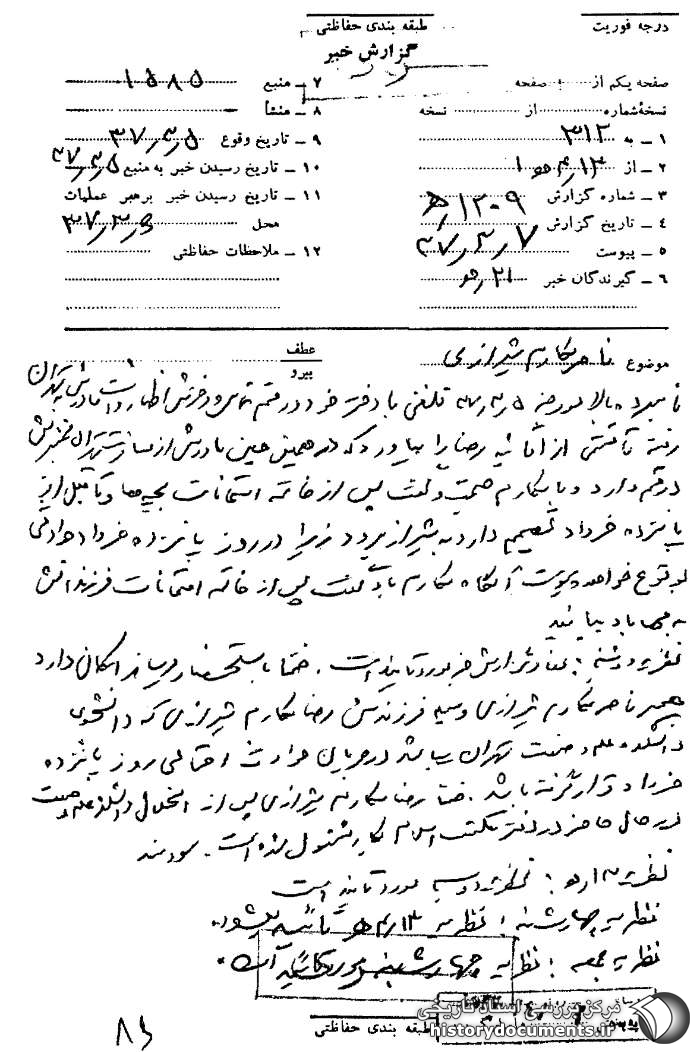 درجه فوریت
طبقه بندی حفاظتی
گزارش خبر
صفحه یکم از صفحه
نسخهٔ شماره از نسخه
۱ ـ به ۳۱۲
۲ ـ از
۳ ـ شماره گزارش
۴ ـ تاریخ گزارش ۳۷٫۳٫۷
۵ ـ پیوست
۶ ـ گیرندگان خبر
۷ ـ منبع ۱۵۸۵
۸ ـ منشأ
۹ ـ تاریخ وقوع ۳۷٫۳٫۵
۱۰ ـ تاریخ رسیدن خبر به منبع ۳۷٫۳٫۵
۱۱ ـ تاریخ رسیدن خبر برهبر عملیات
محل ۳۷٫۳٫۶
۱۲ ـ ملاحظات حفاظتی
موضوع ناصر مکارم شیرازی
عطف
پیرو
نامبرده بالا مورخه ۳۷٫۳٫۵ تلفنی با دفتر خود در قم تماس و اظهار داشت مادرش تهران
رفته تا از رضا را بیاورد که در همین حین مادرش از تهران
در قم وارد و با مکارم صحبت و گفت پس از خاتمه امتحانات بچه‌ها و تا قبل از
پانزده خرداد تصمیم دارد به شیراز برود زیرا در روز پانزده خرداد حوادثی
بوقوع خواهد پیوست آنگاه مکارم گفت پس از خاتمه امتحانات فرزندانش
به مهاباد بیایند
نظریه دوشنبه : مفاد گزارش خبر مورد تایید است. ضمنا باستحضار میرساند امکان دارد
ناصر مکارم شیرازی وسیله فرزندش رضا مکارم شیرازی که دانشجوی
دانشکده علم و صنعت تهران میباشد در جریان حوادث احتمالی روز پانزده
خرداد قرار گرفته باشد. ضمنا رضا مکارم شیرازی پس از انحلال دانشکده علم و صنعت
در حال حاضر در دفتر مکتب اسلام بکار مشغول شده است. سودمند
نظریه : نظریه دوشنبه مورد تایید است
نظریه چهارشنبه : نظریه تائید میشود.
نظریه جمعه : نظریه چهارشنبه مورد تائید است.
طبقه بندی حفاظتی
مرکز بررسی اسناد تاریخی
historydocuments.ir